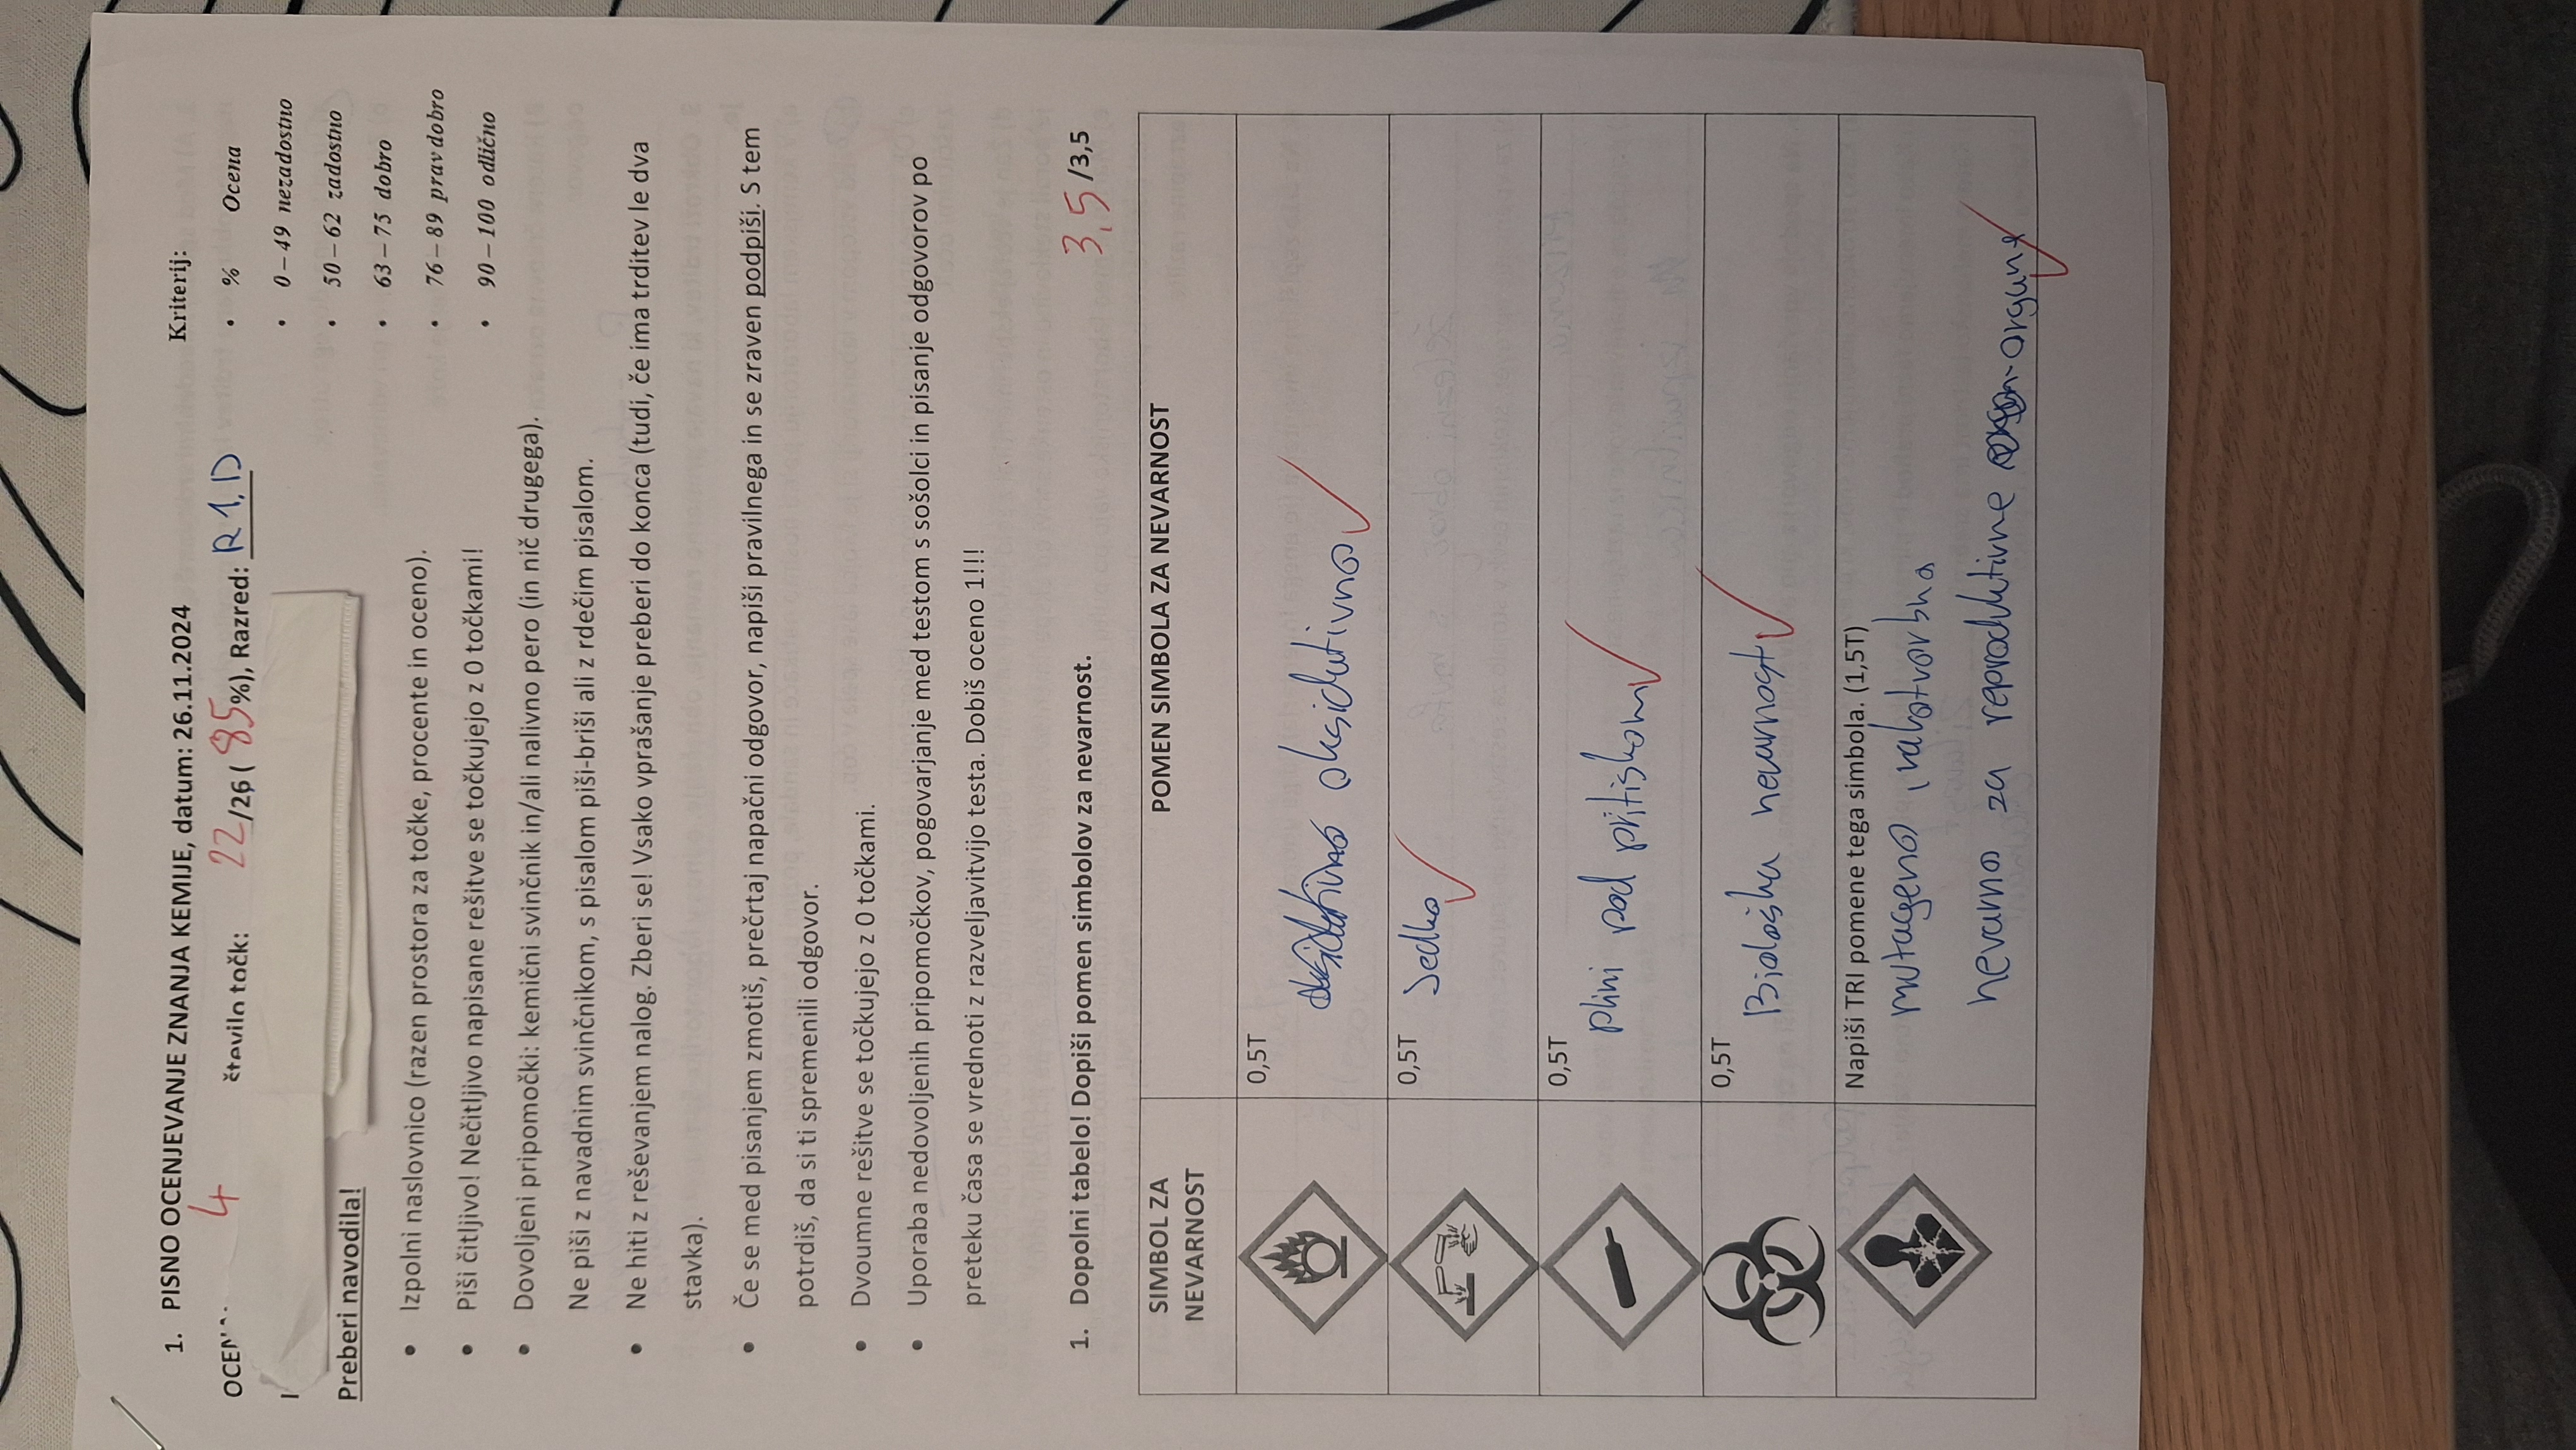 1. PISNO OCENJEVANJE ZNANJA KEMIJE, datum: 26.11.2024
Kriterij:
4
število točk: 22/26 (85%), Razred: R 1. D
• % Ocena
• 0 – 49 nezadostno
• 50 – 62 zadostno
• 63 – 75 dobro
• 76 – 89 prav dobro
• 90 – 100 odlično
Preberi navodila!
• Izpolni naslovnico (razen prostora za točke, procente in oceno).
• Piši čitljivo! Nečitljivo napisane rešitve se točkujejo z 0 točkami!
• Dovoljeni pripomočki: kemični svinčnik in/ali nalivno pero (in nič drugega).
Ne piši z navadnim svinčnikom, s pisalom piši-briši ali z rdečim pisalom.
• Ne hiti z reševanjem nalog. Zberi se! Vsako vprašanje preberi do konca (tudi, če ima trditev le dva
stavka).
• Če se med pisanjem zmotiš, prečrtaj napačni odgovor, napiši pravilnega in se zraven podpiši. S tem
potrdiš, da si ti spremenili odgovor.
• Dvoumne rešitve se točkujejo z 0 točkami.
• Uporaba nedovoljenih pripomočkov, pogovarjanje med testom s sošolci in pisanje odgovorov po
preteku časa se vrednoti z razveljavitvijo testa. Dobiš oceno 1!!!
1. Dopolni tabelo! Dopiši pomen simbolov za nevarnost.
3,5 /3,5
SIMBOL ZA
NEVARNOST
POMEN SIMBOLA ZA NEVARNOST
0,5T
oksidativno
0,5T
Jedko
0,5T
plini pod pritiskom
0,5T
Biološka nevarnost
Napiši TRI pomene tega simbola. (1,5T)
mutageno, rakotvorbna
nevarno za reproduktivne organe